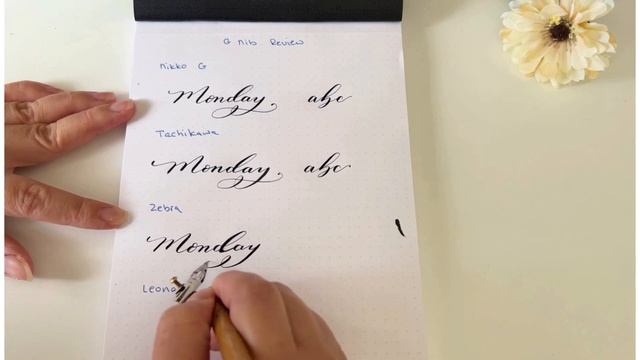 G nib Review
Nikko G
Monday, abc
Tachikawa
Monday, abc
Zebra
Monday